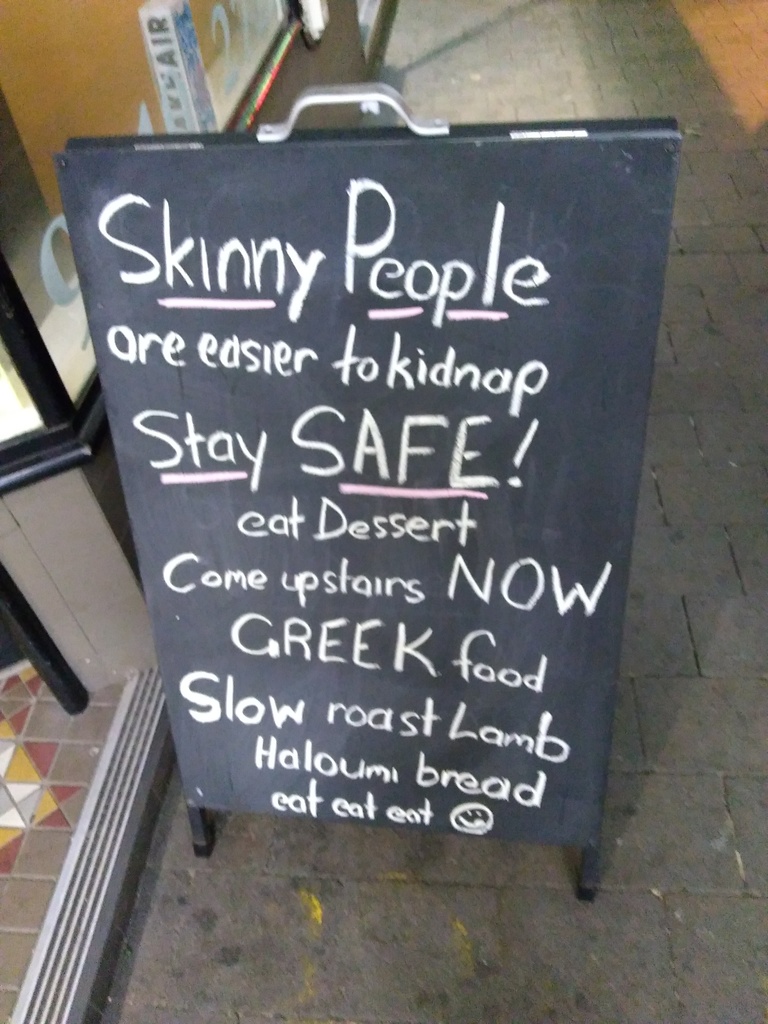 AIR
Skinny People
are easier to kidnap
Stay SAFE!
eat Dessert
Come upstairs NOW
GREEK food
Slow roast Lamb
Haloumi bread
eat eat eat